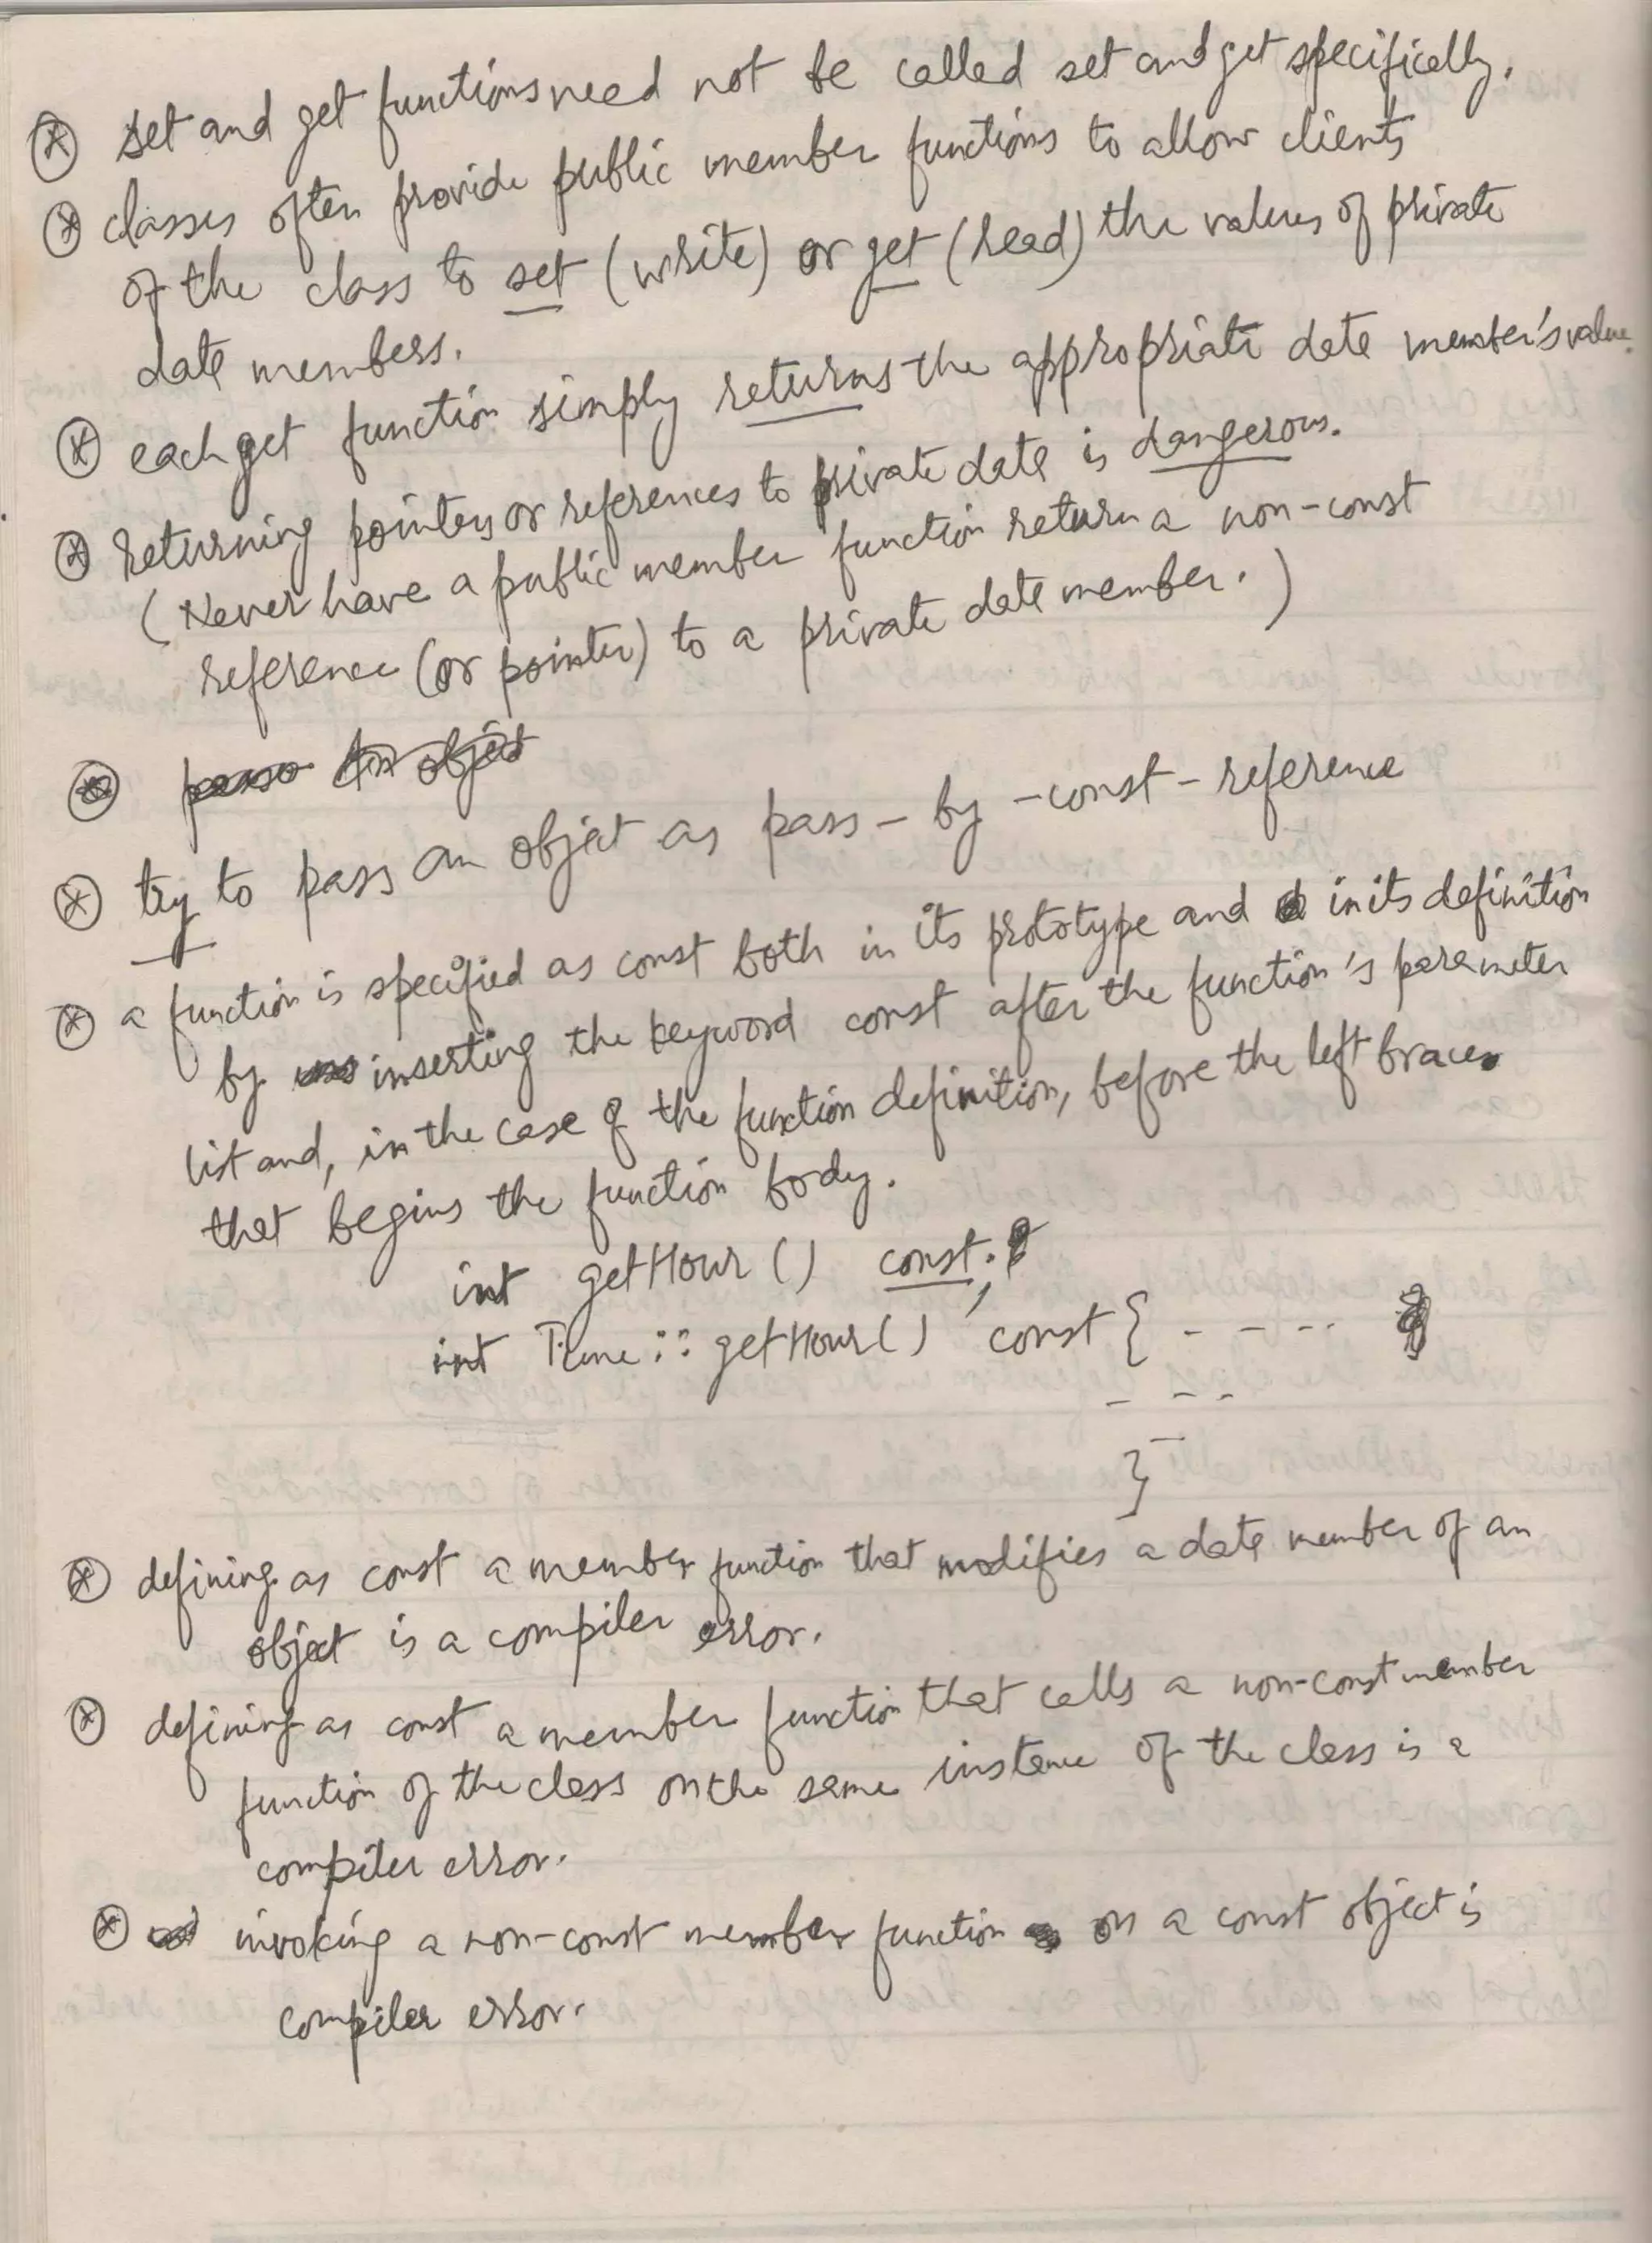 ⊛ set and get functions need not be called set and get specifically.
⊛ classes often provide public member functions to allow clients
of the class to set (write) or get (read) the values of private
data members.
⊛ each get function simply returns the appropriate data member's value.
⊛ returning pointers or references to private data is dangerous.
(Never have a public member function return a non-const
reference (or pointer) to a private data member.)
⊛ try to pass an object as pass-by-const-reference
⊛ a function is specified as const both in its prototype and in its definition
by inserting the keyword const after the function's parameter
list and, in the case of the function definition, before the left brace
that begins the function body.
int getHour () const;
int Time::getHour() const { - - - -
- - -
-
}
⊛ defining as const a member function that modifies a data member of an
object is a compiler error.
⊛ defining as const a member function that calls a non-const member
function of the class on the same instance of the class is a
compiler error.
⊛ invoking a non-const member function on a const object is
compiler error.